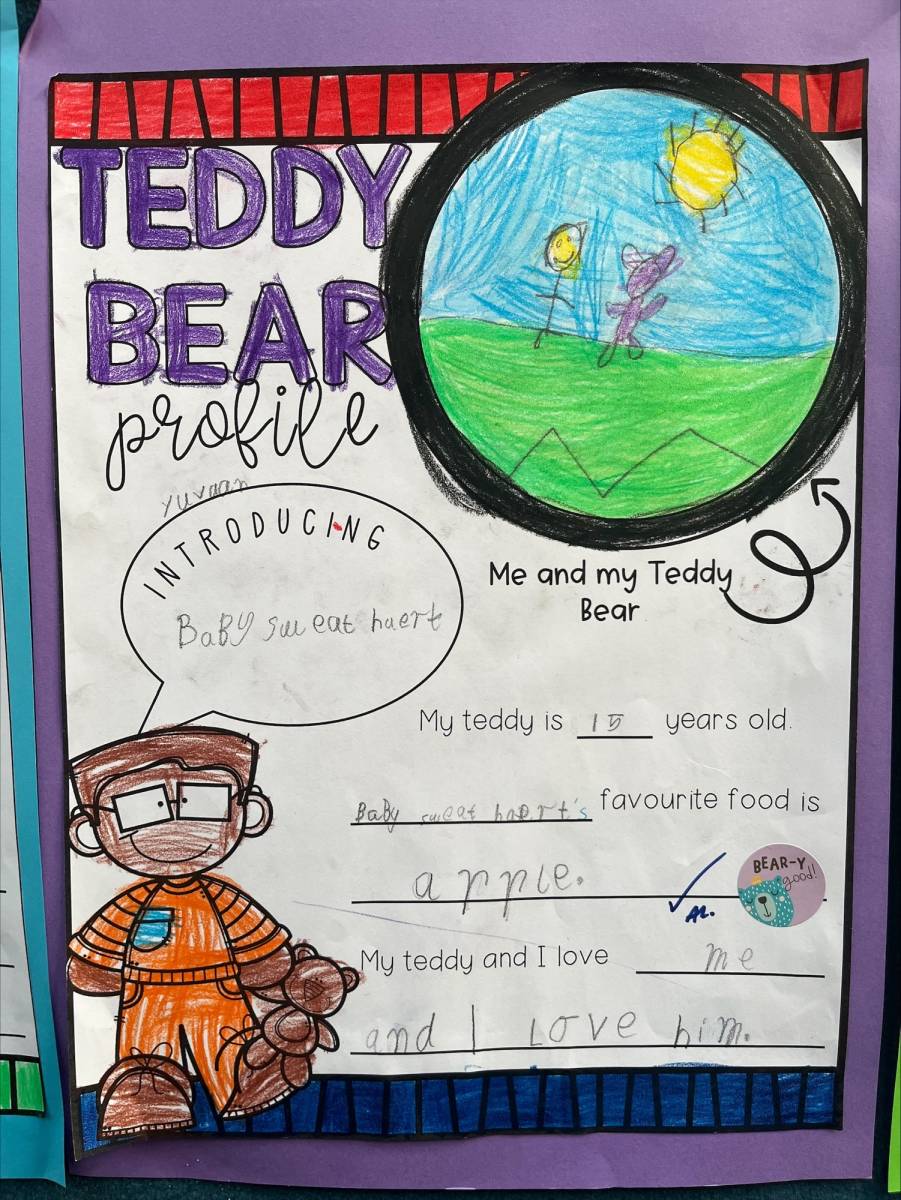 TEDDY
BEAR
profile
yuvaan
INTRODUCING
BaBy sweat huert
Me and my Teddy
Bear
My teddy is 15 years old.
Baby sweat hoert's favourite food is
apple.
BEAR-Y
good!
My teddy and I love me
and I love him.